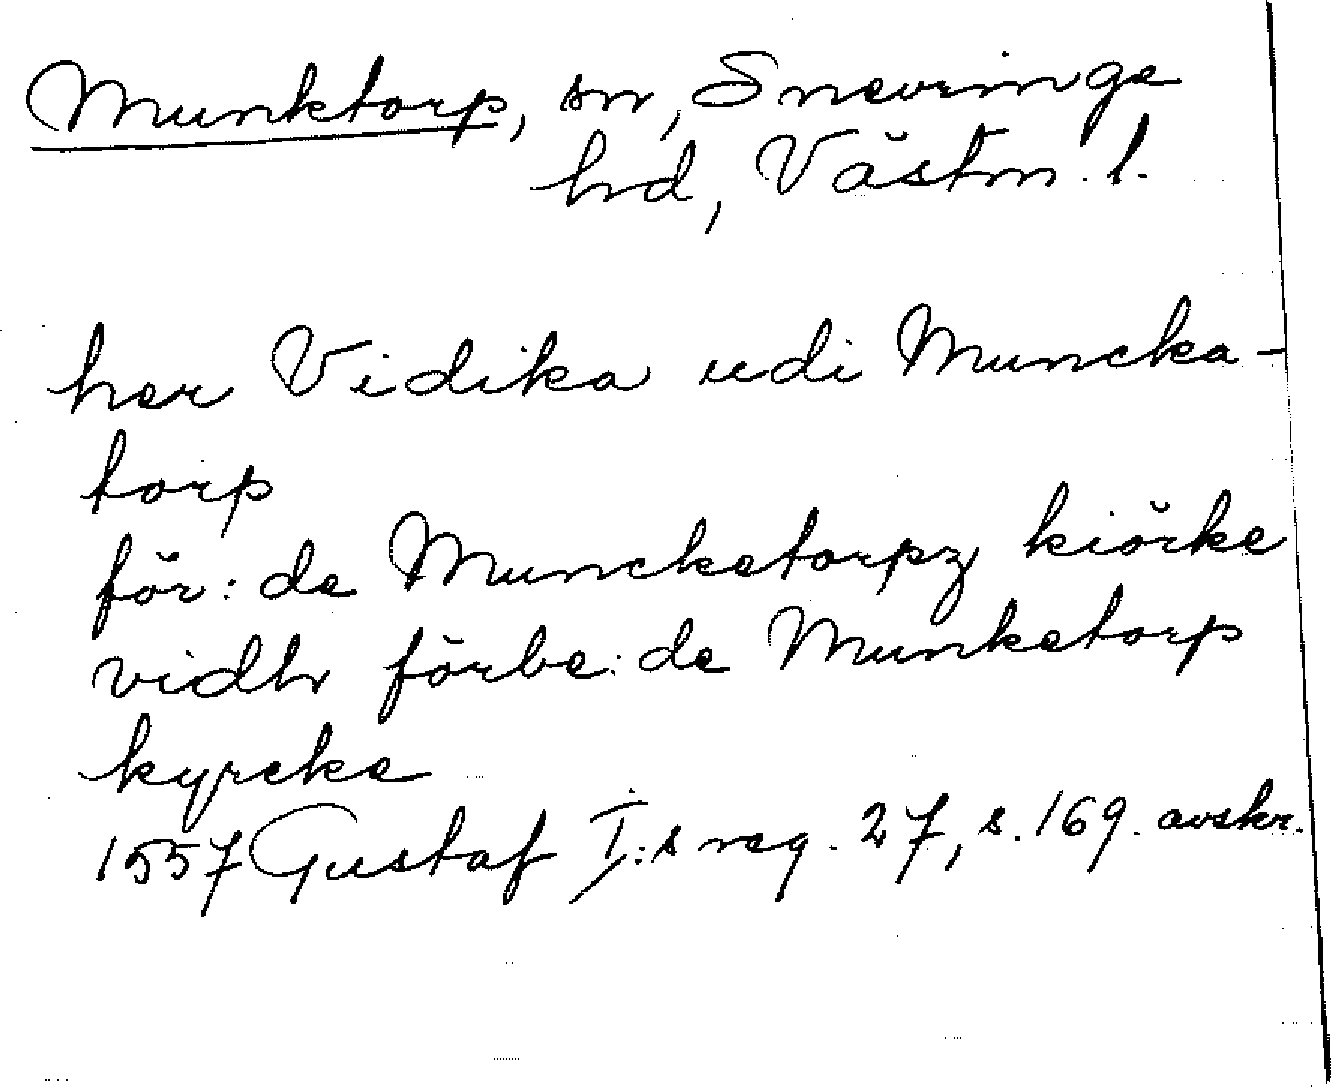 Munktorp, sn, Snevringe
hd, Västm. l.
her Vidika udi Muncka-
torp
för: de Muncketorpz kiörke
vidh förbe: de Munketorp
kyrcke
1557 Gustaf I:s reg. 27, s. 169. avskr.